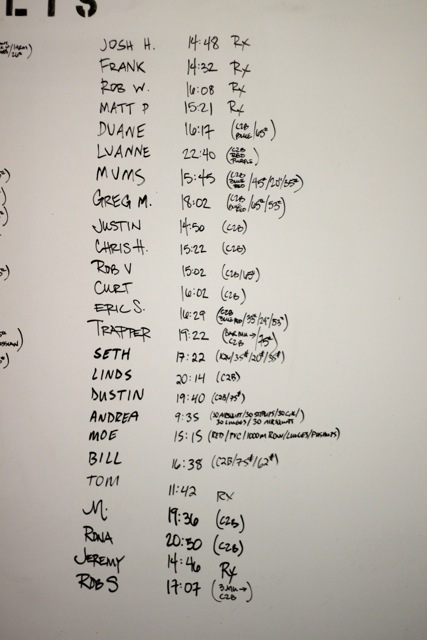 ETS
JOSH H. 14:48 Rx
FRANK 14:32 Rx
ROB W. 16:08 Rx
MATT P 15:21 Rx
DUANE 16:17 (C2B BLUE/65#)
LUANNE 22:40 (C2B RED PURPLE)
MUMS 15:45 (C2B BLUE RED/45#/20"/35#)
GREG M. 18:02 (C2B /65#/53#)
JUSTIN 14:50 (C2B)
CHRIS H. 15:22 (C2B)
ROB V 15:02 (C2B/65#)
CURT 16:02 (C2B)
ERIC S. 16:29 (C2B /55#/24"/53#)
TRAPPER 19:22 ( → C2B /75#)
SETH 17:22 ( /35#/20"/35#)
LINDS 20:14 (C2B)
DUSTIN 19:40 (C2B/75#)
ANDREA 9:35 (30 /30 SITUPS/30 /
30 LUNGES/30 AIR SQUATS)
MOE 15:15 (RED/PVC/1000M ROW/LUNGES/PUSHUPS)
BILL 16:38 (C2B/75#/62#)
TOM 11:42 Rx
M. 19:36 (C2B)
RONA 20:50 (C2B)
JEREMY 14:46 Rx
ROB S 17:07 (3 → C2B)